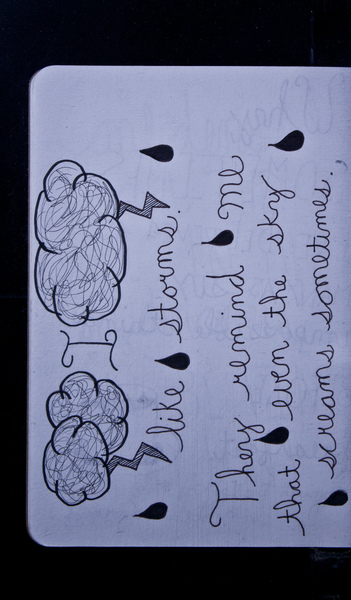 I
like storms.
They remind me
that even the sky
screams sometimes.